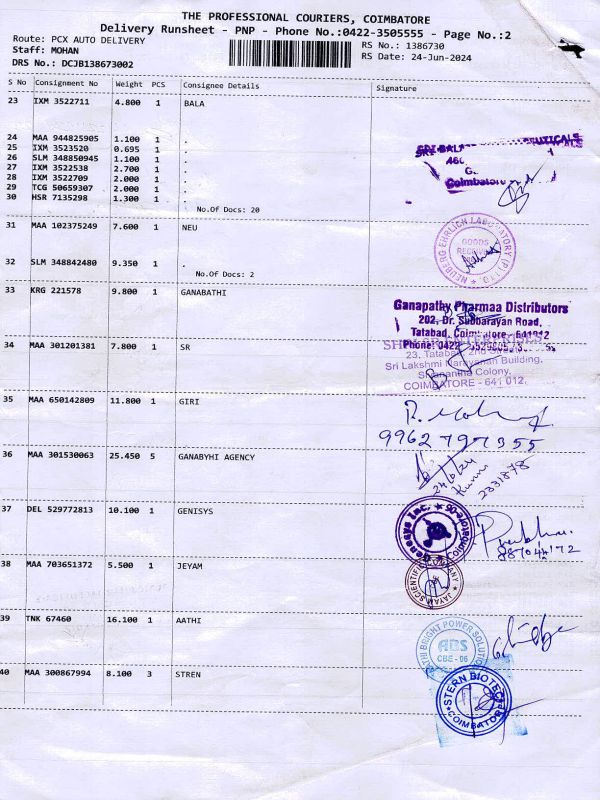 THE PROFESSIONAL COURIERS, COIMBATORE
Delivery Runsheet - PNP - Phone No.:0422-3505555 - Page No.:2
Route: PCX AUTO DELIVERY
RS No.: 1386730
Staff: MOHAN
RS Date: 24-Jun-2024
DRS No.: DCJB138673002
S No Consignment No Weight PCS Consignee Details Signature
23 IXM 3522711 4.800 1 BALA
24 MAA 944825905 1.100 1 .
25 IXM 3523520 0.695 1 .
26 SLM 348850945 1.100 1 .
27 IXM 3522538 2.700 1 .
28 IXM 3522709 2.000 1 .
29 TCG 50659307 2.000 1 .
30 HSR 7135298 1.300 1 .
No.Of Docs: 20
SRI BALA
Coimbatore
31 MAA 102375249 7.600 1 NEU
NEUBERG EHRLICH LABORATORY (P) LTD.
GOODS
RECEIVED
32 SLM 348842480 9.350 1 .
No.Of Docs: 2
33 KRG 221578 9.800 1 GANABATHI
Ganapathy Pharmaa Distributors
202, Dr. Subbarayan Road,
Tatabad, Coimbatore - 641012
Phone: 0422
34 MAA 301201381 7.800 1 SR
23, Tatabad, 2nd Street
Sri Lakshmi Narayanan Building,
Colony,
COIMBATORE - 641 012.
35 MAA 650142809 11.800 1 GIRI
9962797355
36 MAA 301530063 25.450 5 GANABYHI AGENCY
24/6/24
2331878
37 DEL 529772813 10.100 1 GENISYS
Genesys Inc.
38 MAA 703651372 5.500 1 JEYAM
JAYAM SCIENTIFIC COMPANY
39 TNK 67460 16.100 1 AATHI
BRIGHT POWER SOLUTION
ABS
CBE - 06
40 MAA 300867994 8.100 3 STREN
STERN BIOTECH
COIMBATORE